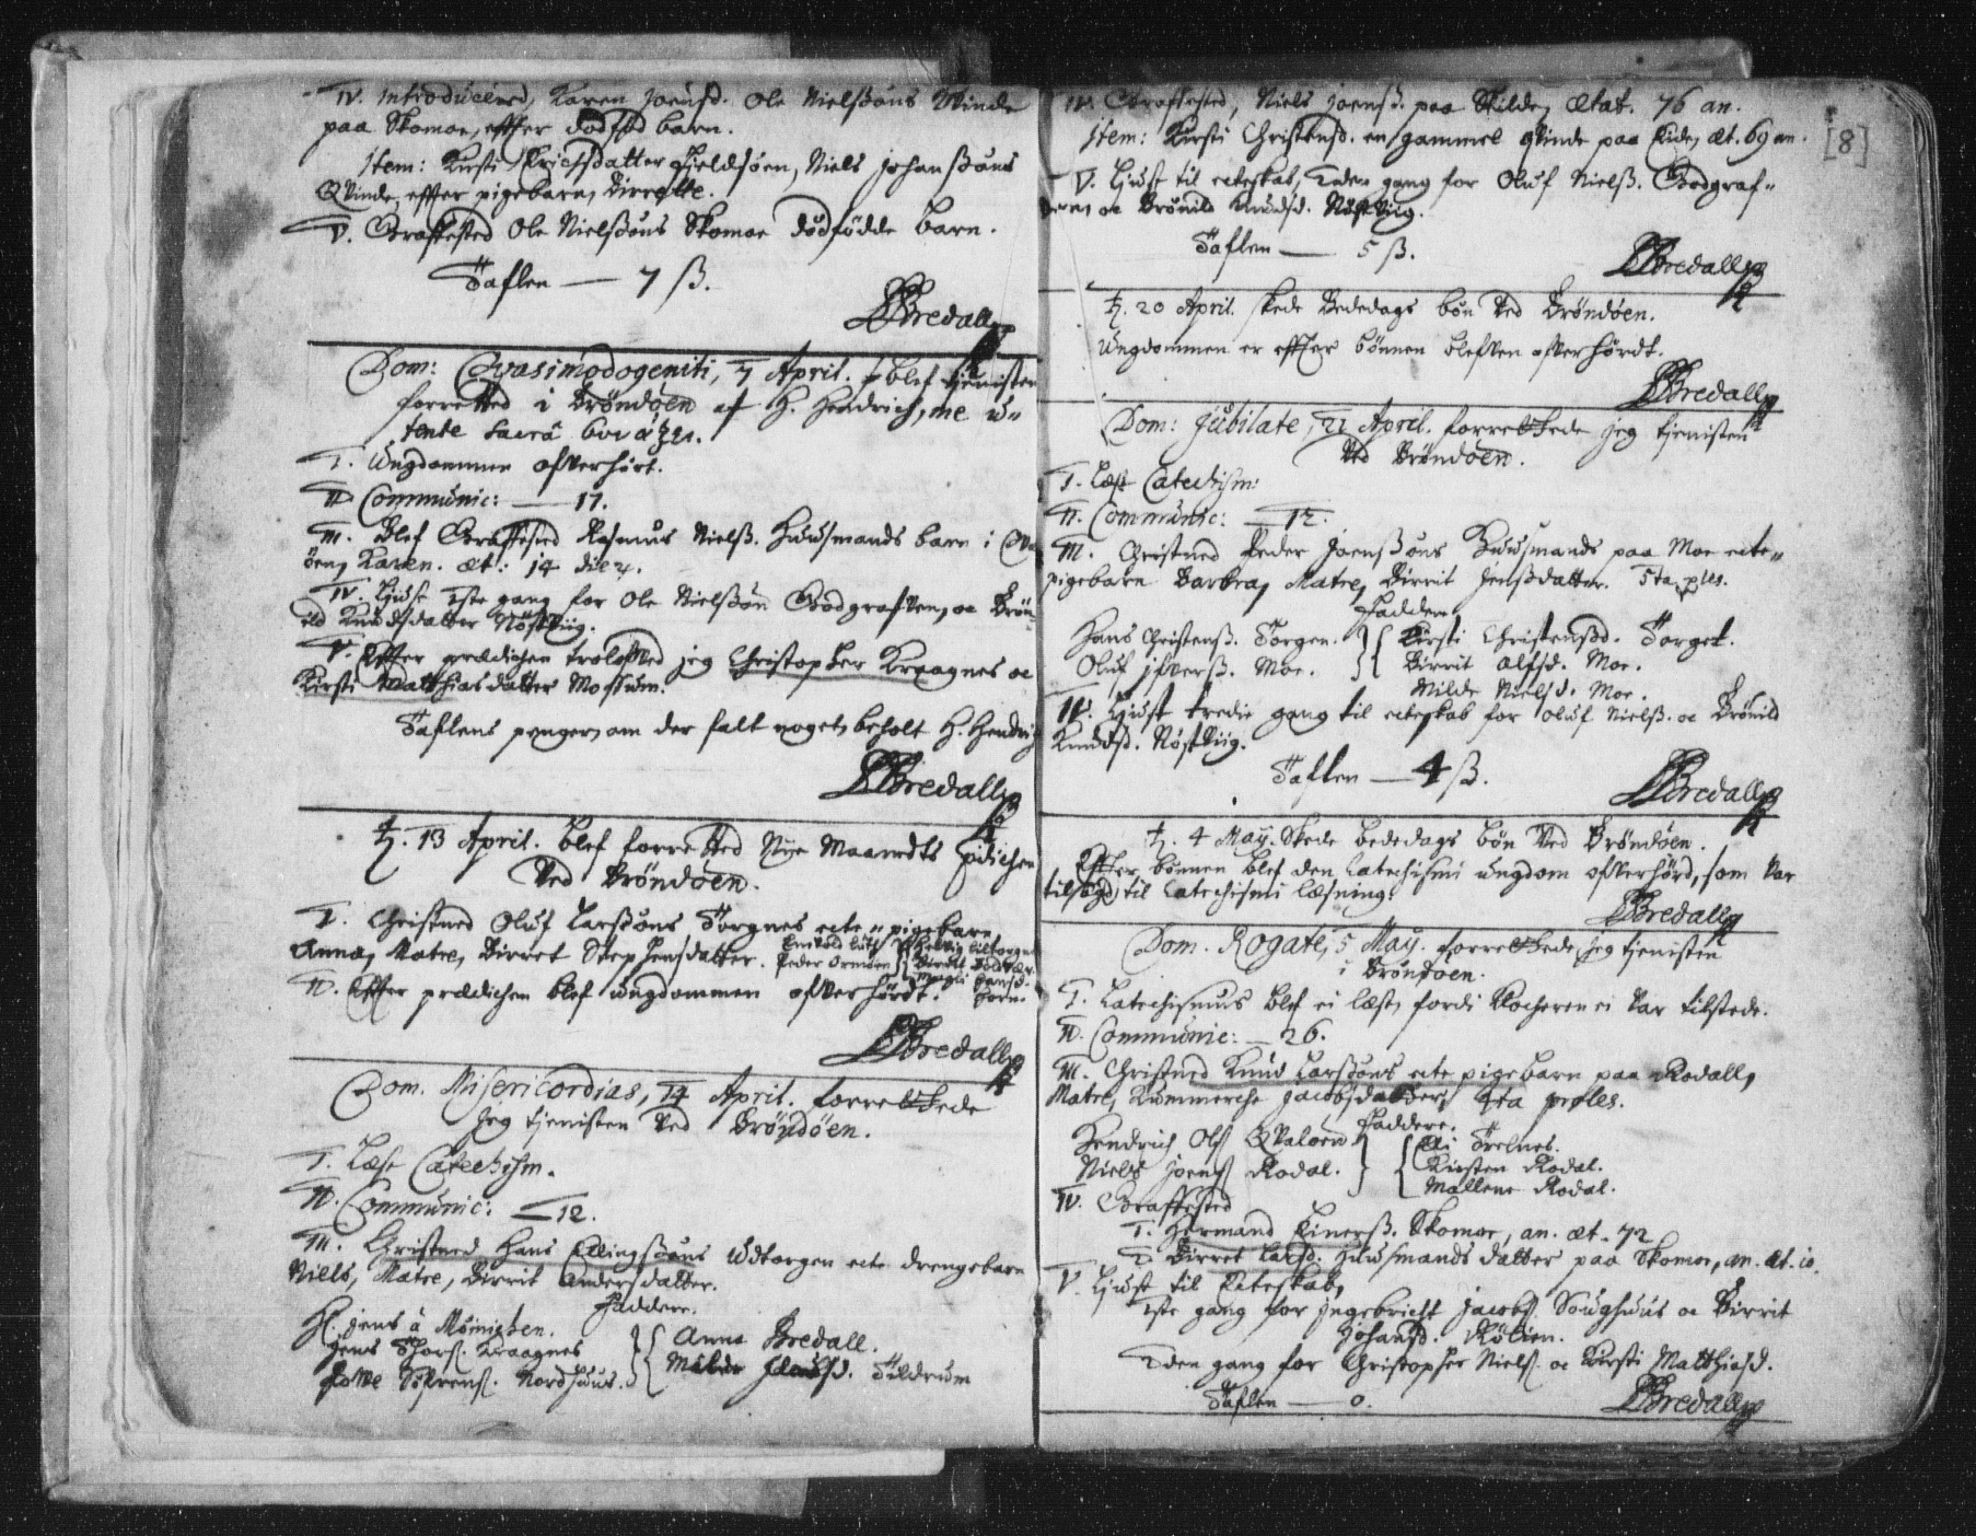 IV. Introducered, Karen Joensd. Ole Nielsøns Qvinde
paa Skomoe, efter dødfød barn.
Item: Kirsti Erichsdatter Hieldsøen, Niels Johansøns
Qvinde, efter pigebarn, Birrette.
V. Graffested Ole Nielsøns Skomoe dødfødde barn.
Taflen — 7 ß.
Bredall
Dom: Qvasimodogeniti, 7 April. blef tjenisten
forretted i Brøndøen af H. Hendrich, me
I. Ungdommen ofverhört.
II Communic: — 17.
III. Blef Graffested Rasmus Nielß. Huusmands barn i
øen, Karen. æt: 14 dier.
IV. Liust 1ste gang for Ole Nielsøn Godgraffven, oc Brøn-
ild Knudsdatter Nøstviig.
V. Efter prædichen trolofved jeg Christopher Kraagnes oc
Kirsti Matthiasdatter Mossum.
Taflens penger, om der falt noget, beholt H. Hendrich
Bredall
ꜩ. 13 April. blef forretted Nye Maanedts pdichen
Ved Brøndøen.
I. Christned Oluf Larsøns Torgnes ecte pigebarn
Anna, Matre, Birret Stephensdatter.
Peder Ormøen
II. Efter prædichen blef ungdommen ofverhördt.
Bredall
Dom. Misericordias, 14 April. forrettede
Jeg tjenisten Ved Brøndøen.
I. Læst Catechism.
II. Communic: — 12.
III. Christned Hans Ellingsøns Udtorgen ecte drengebarn
Niels, Matre, Birrit Andersdatter.
Faddere.
H. Jens à Møinichen.
Jens Thorß. Kraagnes
Tolle Sørrenß. Nordhuus.
Anna Bredall.
Tildrum
IV. Graffested, Niels Joensß. paa Tilde, Ætat. 76 an.
Item: Kirsti Christensd. en gammel Qvinde paa Eide, Æt. 69 an.
[8]
V. Liust til ecteskab, 2den gang for Oluf Nielß. Godgraf-
ven, oc Brønild Knudsd. Nøstviig.
Taflen — 5 ß.
Bredall
ꜩ. 20 April. skede Bededags bøn Ved Brøndøen.
Ungdommen er efter bønnen bleffven ofverhördt.
Bredall
Dom: Jubilate, 21 April. forrettede jeg tjenisten
Ved Brøndøen.
I. Læst Catechism:
II. Communic: — 12.
III. Christned Peder Joensøns Huusmands paa Moe ecte
pigebarn Barbra, Matre, Birrit Jensdatter. 5ta ples.
Faddere
Hans Christenß. Torgen.
Oluf Ifverß. Moe.
Kirsti Christensd. Torget.
Birrit Alfsd. Moe.
Milde Nielsd. Moe.
IV. Liust tredie gang til ecteskab for Oluf Nielß. oc Brønild
Knudsd. Nøstviig.
Taflen — 4 ß.
Bredall
ꜩ. 4 May. Skede bededags bøn Ved Brøndøen.
Efter bønnen blef den Catechismi ungdom ofverhørd, som Var
tilsagd til Catechismi læsning.
Bredall
Dom. Rogate, 5 May. forrettede jeg tjenisten
i Brøndøen.
I. Catechismus blef ei læst, fordi Klocheren ei Var tilstede.
II. Communic: — 26.
III. Christned Knud Larsøns ecte pigebarn paa Rodall,
Matre, Kummerche Jacobsdatter, proles.
Faddere.
Hendrich Olß Qvaløen
Niels Joenß Rodal.
Eli Trelnes.
Kirsten Rodal.
Mallene Rodal.
IV. Graffested
1. Hermand Einerß. Skomoe, an. æt. 72
2. Birret Larsd. Huusmands datter paa Skomoe, an. æt. 10.
V. Liust til Ecteskab,
1ste gang for Ingebricht Jacobß. Soughuus oc Birrit
Johansd. Røllien.
2den gang for Christopher Nielß. oc Kirsti Matthiasd.
Taflen — 0.
Bredall